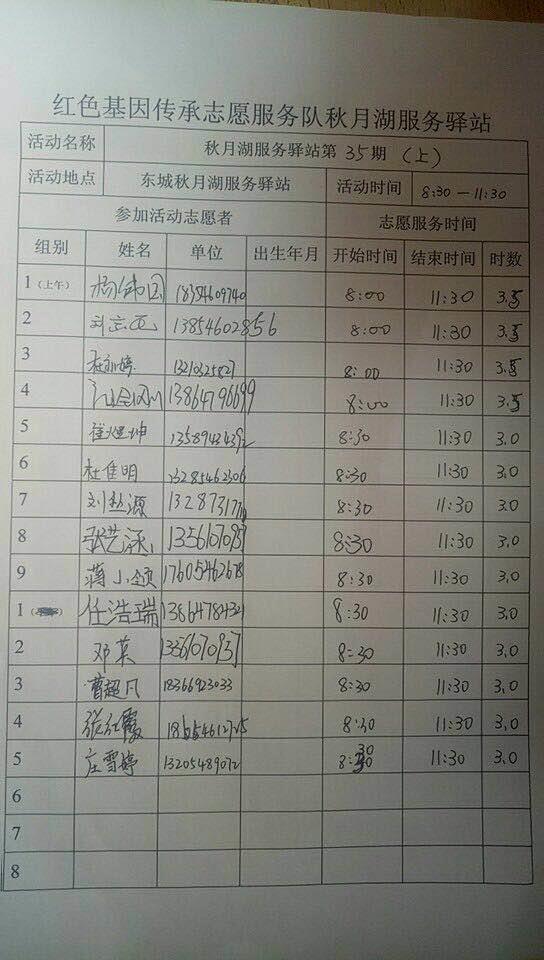 红色基因传承志愿服务队秋月湖服务驿站
活动名称 秋月湖服务驿站第35期(上)
活动地点 东城秋月湖服务驿站 活动时间 8:30—11:30
参加活动志愿者 志愿服务时间
组别 姓名 单位 出生年月 开始时间 结束时间 时数
1(上午) 18354609740 8:00 11:30 3.5
2 13854602856 8:00 11:30 3.5
3 8:00 11:30 3.5
4 13864796699 8:00 11:30 3.5
5 8:30 11:30 3.0
6 杜佳明 8:30 11:30 3.0
7 8:30 11:30 3.0
8 8:30 11:30 3.0
9 17605462678 8:30 11:30 3.0
1 任浩瑞 8:30 11:30 3.0
2 邓英 8:30 11:30 3.0
3 曹超凡 18366923033 8:30 11:30 3.0
4 张红霞 8:30 11:30 3.0
5 庄雪婷 13205489072 8:30 11:30 3.0
6
7
8